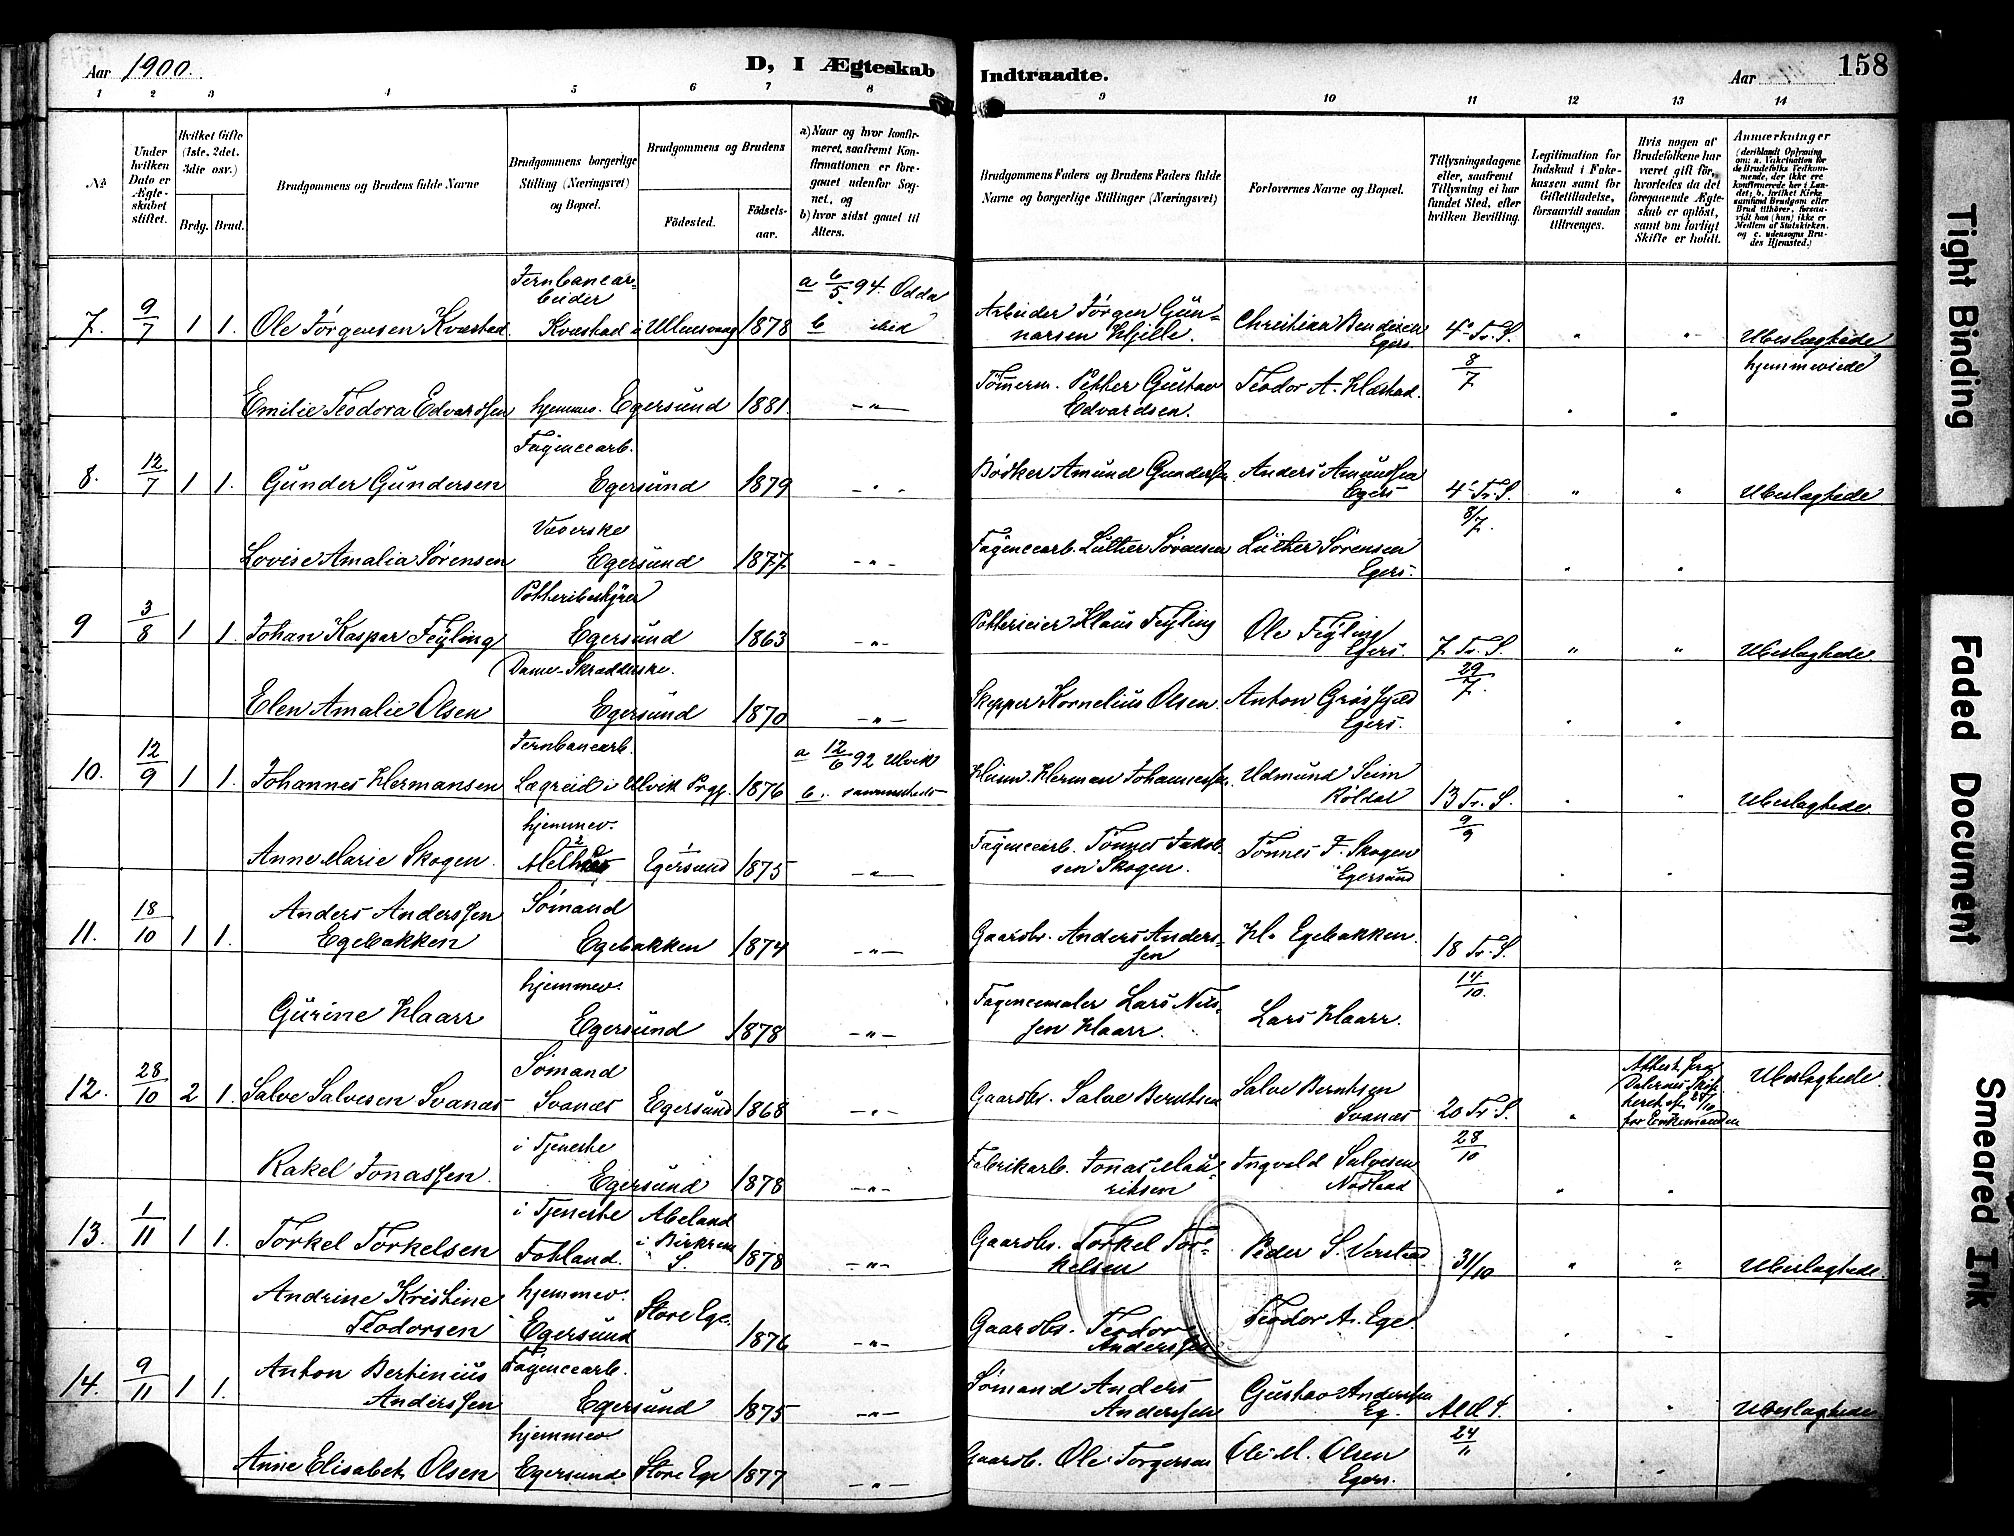 Aar 1900.
D, I Ægteskab Indtraadte.
Aar
158
1 2 3 4 5 6 7 8 9 10 11 12 13 14
No
Under hvilken Dato er Ægteskabet stiftet.
Hvilket Gifte (1ste, 2det. 3die osv.)
Brdg. Brud.
Brudgommens og Brudens fulde Navne
Brudgommens borgerlige Stilling (Næringsvei) og Bopæl.
Brudgommens og Brudens
Fødested.
Fødselsaar.
a) Naar og hvor konfirmeret, saafremt Konfirmationen er foregaaet udenfor Sognet, og
b) hvor sidst gaaet til Alters.
Brudgommens Faders og Brudens Faders fulde Navne og borgerlige Stillinger (Næringsvei)
Forlovernes Navne og Bopæl.
Tillysningsdagene eller, saafremt Tillysning ei har fundet Sted, efter hvilken Bevilling.
Legitimation for Indskud i Enkekassen samt for Giftetilladelse, forsaavidt saadan tiltrænges.
Hvis nogen af Brudefolkene har været gift før, hvorledes da det foregaaende Ægteskab er opløst, samt om lovligt Skifte er holdt.
Anmærkninger
(deriblandt Oplysning om: a. Vakcination for de Brudefolks Vedkommende, der ikke ere konfirmerede her i Landet; b. hvilket Kirkesamfund Brudgom eller Brud tilhører, forsaavidt han (hun) ikke er Medlem af Statskirken. og c. udensogns Brudes Hjemsted.)
7. 9/7 1 1. Ole Jørgensen Kvæstad Jernbanearbeider Kvæstad i Ullensvang 1878 a 6/5 94. Odda b ibid Arbeider Jørgen Gunnarsen Hjelle. Christian Bendixen Egers. 4de Tr. S. 8/7 " " Ubeslægtede hjemmeviede
Emilie Teodora Edvardsen hjemmev. Egersund 1881. —"— Tømmerm. Petter Gustav Edvardsen. Teodor A. " "
8. 12/7 1 1. Gunder Gundersen Fayencearb. Egersund 1879 —"— Bødker Amund Gundersen Anders Amundsen Egers 4de Tr. S. 8/7. " " Ubeslægtede
Lovise Amalia Sørensen Væverske Egersund 1877. —"— Fayencearb. Luther Sørensen Luther Sørensen Egers. " "
9 3/8 1 1. Johan Kaspar Feyling Potteribestyrer Egersund 1863 —"— Potterieier Klaus Feyling Ole Feyling Egers. 7 Tr. S. 29/7. " " Ubeslægtede.
Elen Amalie Olsen Dame-Skrædderske. Egersund 1870 —"— Skipper Kornelius Olsen. Anton Grøsfjeld Egers. " "
10. 12/9 1 1. Johannes Hermansen Jernbanearb. Lægreid i Ulvik Prgj. 1876 a 12/6 92 Ulvik b. sammesteds Herman Johannessen. Udmund Seim Röldal 13 Tr. S. 9/9 " " Ubeslægtede.
Anne Marie Skogen. hjemmev. Egersund 1875 —"— Fayencearb. Tønnes Jakobsen Skogen. Tønnes J. Skogen Egersund " "
11. 18/10 1 1. Anders Anderssen Egebakken Sømand Egebakken 1874 —"— Gaardbr. Anders Anderssen Egebakken. 18 Tr. S. 14/10.
Gurine Haarr hjemmev. Egersund 1878 —"— Fayencemaler Lars Nilssen Haarr. Lars Haarr.
12. 28/10 2 1. Salve Salvesen Svanæs Sømand Svanæs Egersund 1868 —"— Gaardbr. Salve Berntsen Salve Berntsen Svanæs 20 Tr. S. 28/10 " Attest fra Dalernes Skifteret af for Enkemanden Ubeslægtede.
Rakel Jonassen. i Tjeneste Egersund 1878 —"— Fabrikarb. Jonas Mauriksen Ingvald Salvesen " "
13. 1/11 1 1. Torkel Torkelsen i Tjeneste Fotland. Abeland i Birkrem S 1878 —"— Gaardbr. Torkel Torkelsen Peder S. 31/10 " " Ubeslægtede.
Andrine Kristine Teodorsen hjemmev. Egersund Store Ege. 1876 —"— Gaardbr. Teodor Anderssen Teodor A. Ege. " "
14. 9/11 1 1. Anton Bertinius Anderssen Fayencearb. Egersund 1875 —"— Sømand Anders Anderssen Gustav Anderssen Eg. 24/11 " " Ubeslægtede
Anne Elisabet Olsen hjemmev Egersund Store Ege 1877 —"— Gaardb. Ole Torgersen Ole M. Olsen Egers. " "
Tight Binding
Faded Document
Smeared Ink